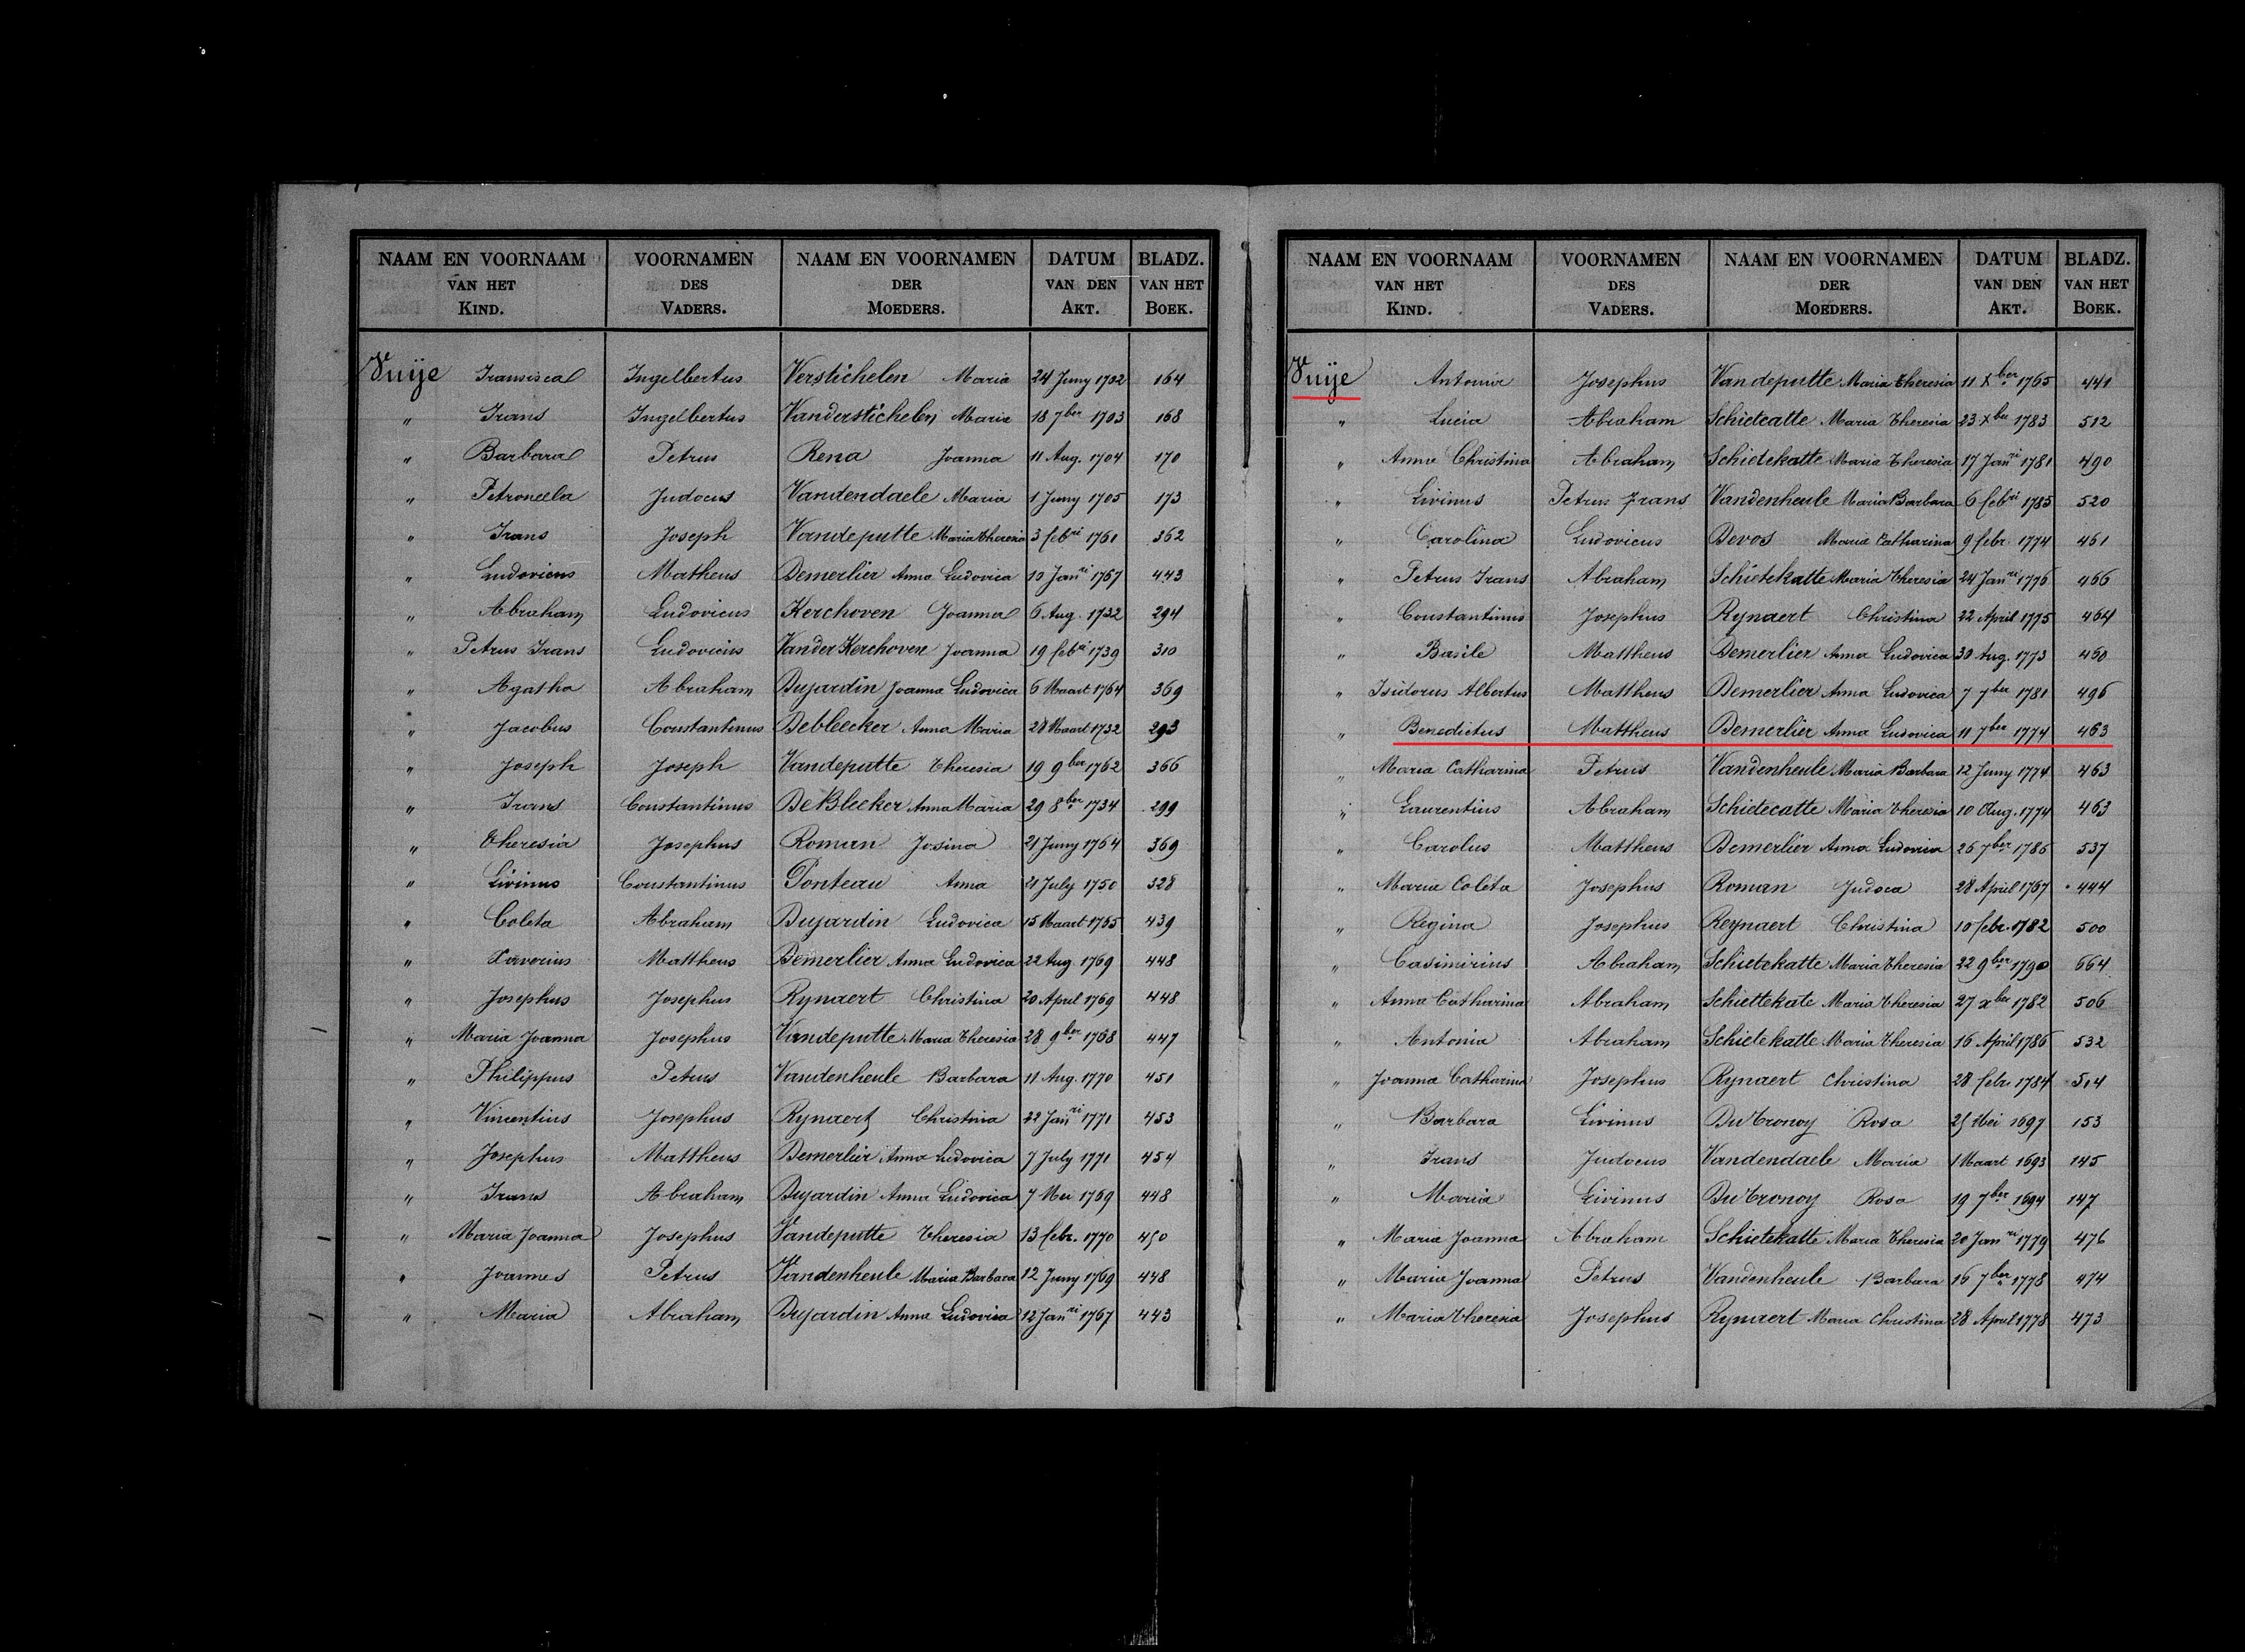 NAAM EN VOORNAAM VAN HET KIND. VOORNAMEN DES VADERS. NAAM EN VOORNAMEN DER MOEDERS. DATUM VAN DEN AKT. BLADZ. VAN HET BOEK.
Vuije Fransisca Ingelbertus Verstichelen Maria 24 Juny 1702 164
" Frans Ingelbertus Vanderstichelen Maria 18 7ber 1703 168
" Barbara Petrus Rena Joanna 11 Aug. 1704 170
" Petronella Judocus Vandendaele Maria 1 Juny 1705 173
" Frans Joseph Vandeputte Maria Theresia 3 febri 1761 362
" Ludovicus Matheus Demerlier Anna Ludovica 10 Janri 1767 443
" Abraham Ludovicus Kerchoven Joanna 6 Aug. 1732 294
" Petrus Frans Ludovicus Vander Kerchoven Joanna 19 febri 1739 310
" Agatha Abraham Dujardin Joanna Ludovica 6 Maart 1764 369
" Jacobus Constantinus Debleecker Anna Maria 28 Maart 1732 293
" Joseph Joseph Vandeputte Theresia 19 9ber 1762 366
" Frans Constantinus De Bleeker Anna Maria 29 8ber 1734 299
" Theresia Josephus Roman Josina 21 Juny 1764 369
" Livinus Constantinus Ponteau Anna 21 July 1750 328
" Coleta Abraham Dujardin Ludovica 15 Maart 1765 439
" Xaverius Mattheus Demerlier Anna Ludovica 22 Aug. 1769 448
" Josephus Josephus Rynaert Christina 20 April 1769 448
" Maria Joanna Josephus Vandeputte Maria Theresia 28 9ber 1768 447
" Philippus Petrus Vandenheule Barbara 11 Aug. 1770 451
" Vincentius Josephus Rynaert Christina 22 Janri 1771 453
" Josephus Mattheus Demerlier Anna Ludovica 7 July 1771 454
" Frans Abraham Dujardin Anna Ludovica 7 Mei 1769 448
" Maria Joanna Josephus Vandeputte Theresia 13 febr. 1770 450
" Joannes Petrus Vandenheule Maria Barbara 12 Juny 1769 448
" Maria Abraham Dujardin Anna Ludovica 12 Janri 1767 443
NAAM EN VOORNAAM VAN HET KIND. VOORNAMEN DES VADERS. NAAM EN VOORNAMEN DER MOEDERS. DATUM VAN DEN AKT. BLADZ. VAN HET BOEK.
Vuije Antonia Josephus Vandeputte Maria Theresia 11 Xber 1765 441
" Lucia Abraham Schietcatte Maria Theresia 23 Xber 1783 512
" Anna Christina Abraham Schietekatte Maria Theresia 17 Janri 1781 490
" Livinus Petrus Frans Vandenheule Maria Barbara 6 febri 1785 520
" Carolina Ludovicus Devos Maria Catharina 9 febr. 1774 461
" Petrus Frans Abraham Schietekatte Maria Theresia 24 Janri 1776 466
" Constantinus Josephus Rynaert Christina 22 April 1775 464
" Basile Mattheus Demerlier Anna Ludovica 30 Aug. 1773 460
" Isidorus Albertus Mattheus Demerlier Anna Ludovica 7 7ber 1781 496
" Benedictus Mattheus Demerlier Anna Ludovica 11 7ber 1774 463
" Maria Catharina Petrus Vandenheule Maria Barbara 12 Juny 1774 463
" Laurentius Abraham Schietecatte Maria Theresia 10 Aug. 1774 463
" Carolus Mattheus Demerlier Anna Ludovica 26 7ber 1786 537
" Maria Coleta Josephus Roman Judoca 28 April 1767 444
" Regina Josephus Reynaert Christina 10 febr. 1782 500
" Casimirius Abraham Schietekatte Maria Theresia 22 9ber 1790 664
" Anna Catharina Abraham Schiettekate Maria Theresia 27 xber 1782 506
" Antonia Abraham Schietekatte Maria Theresia 16 April 1786 532
" Joanna Catharina Josephus Rynaert Christina 28 febr. 1784 514
" Barbara Livinus DuTronoy Rosa 25 Mei 1697 153
" Frans Judocus Vandendaele Maria 1 Maart 1693 145
" Maria Livinus DuTronoy Rosa 19 7ber 1694 147
" Maria Joanna Abraham Schietekatte Maria Theresia 20 Janri 1779 476
" Maria Joanna Petrus Vandenheule Barbara 16 7ber 1778 474
" Maria Theresia Josephus Rynaert Maria Christina 28 April 1778 473